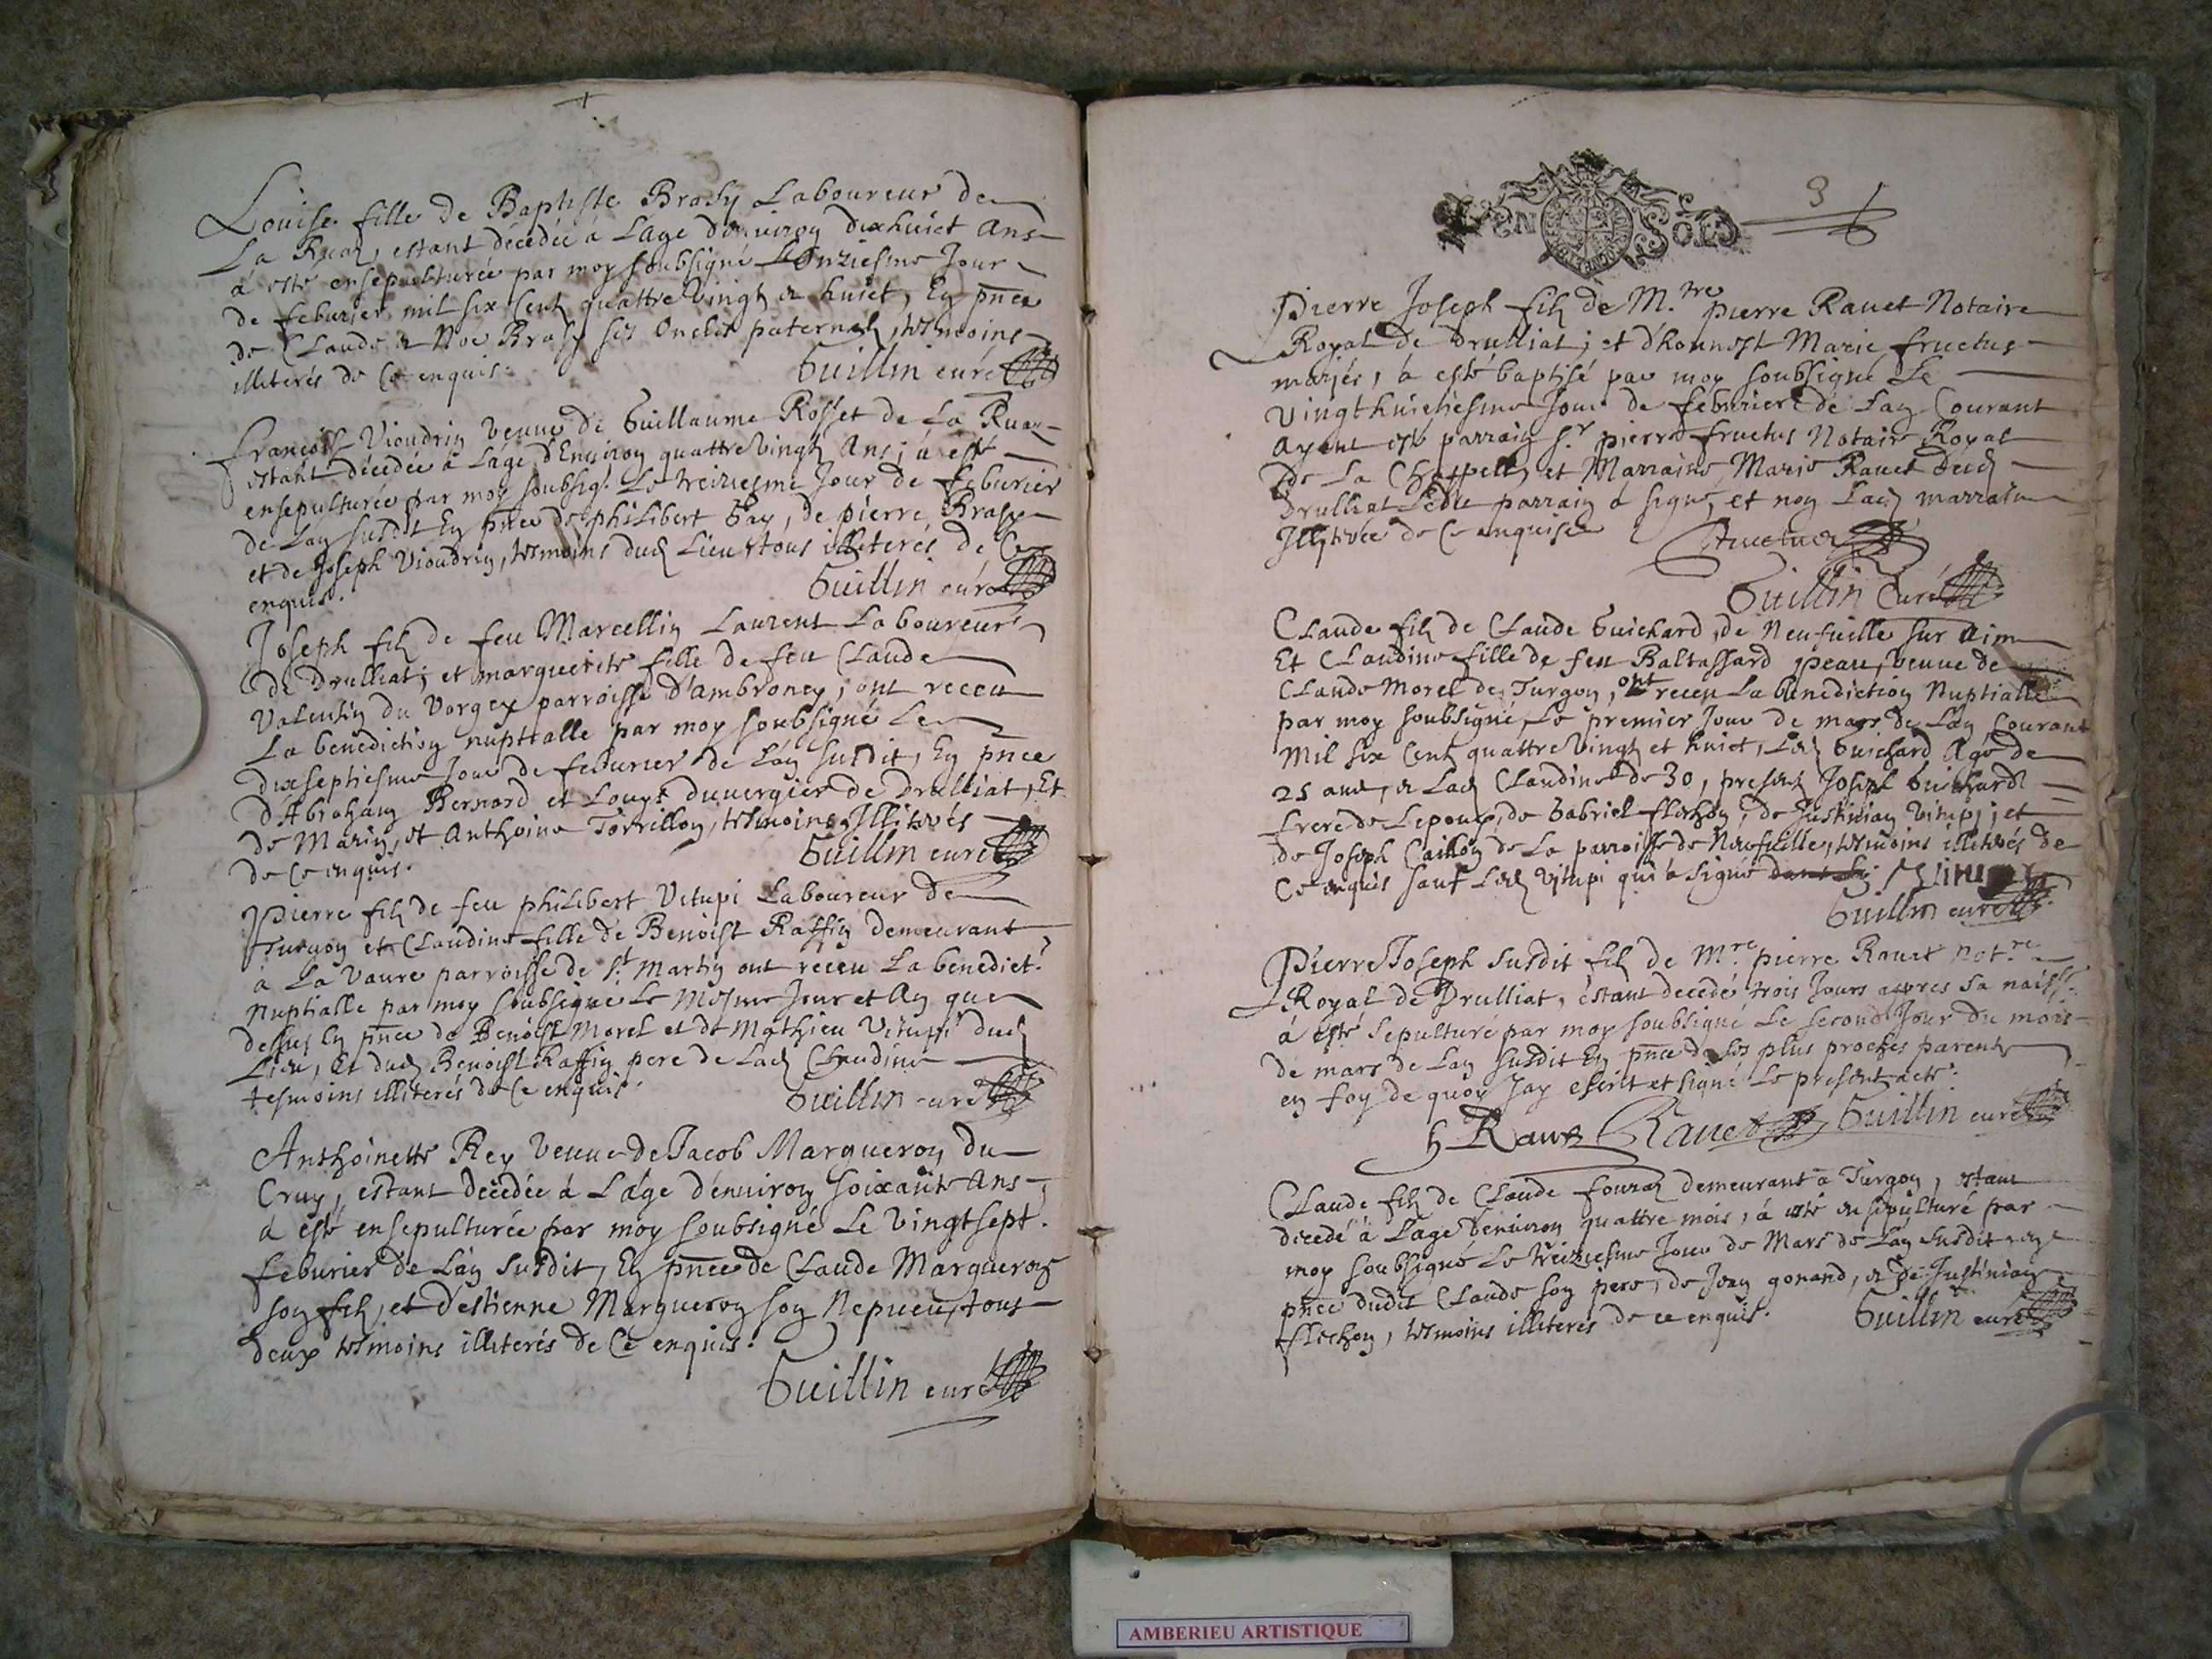 Louise fille de Baptiste Brasy Laboureur de
La Ruaz, estant décédée à l'age d'environ dixhuict Ans
a esté ensepulturée par moy soubsigné L'Onziesme Jour
de feburier mil six Centz quattre Vingtz & huict, En pnce
de Claude & Noe Brasy ses Oncles paternelz, tesmoins
illiterés de Ce enquis.
Guillin curé
Vioudrin Veuue de Guillaume Rosset de La Ruaz
estant décédée à L'age d'Enuiron quattre Vingtz Ans; a esté
ensepulturée par moy soubsig. Le treiziesme Jour de feburier
de Lan susdit En pnce de philibert Gay, de pierre Brasy
et de Joseph Vioudrin, tesmoins dud Lieu tous illiterés de Ce
enquis.
Guillin curé
Joseph filz de feu Marcellin Laurent Laboureur
de Drulliat; et marguerite fille de feu Claude
Valentin du Vorgey parroisse d'Ambroney; ont receu
La benediction nuptialle par moy soubsigné Le
dixseptiesme Jour de feburier de L'an susdit, En pnce
d'Abraham Bernard et Louys duuergier de Drulliat, Et
de Marin, et Anthoine Torrillon, tesmoins Illiterés
de Ce enquis.
Guillin curé
Pierre filz de feu philibert Vitupi Laboureur de
Turgon et Claudine fille de Benoist Raffin demeurant
à La Vaure parroisse de St Martin ont receu La benedict.
Nuptialle par moy soubsigné Le Mesme Jour et An que
dessus En pnce de Benoist Morel et de Mathieu Vitupi dud
Lieu, Et dud Benoist Raffin pere de Lad Claudine
tesmoins illiterés de Ce enquis.
Guillin curé
Anthoinette Rey Veuue de Jacob Margueron du
Cruy, estant decedée à L'age d'enuiron soixante Ans
a esté ensepulturée par moy soubsigné Le Vingtsept.
feburier de L'an susdit, En pnce de Claude Margueron
son filz, et d'estienne Margueron son Nepueu, tous
deux tesmoins illiterés de Ce enquis.
Guillin curé
3
Pierre Joseph filz de M.tre pierre Rauet Notaire
Royal de Drulliat; et d'honneste Marie fructus
mariés, a esté baptisé par moy soubsigné Le
Vingthuictiesme Jour de feburier de L'an Courant
Ayant esté parrain s.r pierre fructus Notaire Royal
de La Chappelle, et Marraine Marie Rauet dud
Drulliat Ledit parrain a signé, et non Lad marraine
Illiterée de Ce enquise
Guillin Curé
Claude filz de Claude Guichard, de Neufuille sur Ain
Et Claudine fille de feu Baltassard peau, veuue de
Claude Morel de Turgon, ont receu La benediction Nuptialle
par moy soubsigné, Le premier Jour de mars de L'an Courant
Mil six Centz quattre Vingtz et huict, Led Guichard Agé de
25 ans, & Lad Claudine de 30, presentz Joseph Guichard
frere de L'epoux, de Gabriel flechon, de Justinian Vitupi; et
de Joseph Caillon de La parroisse de Neufuille, tesmoins illiterés de
Ce enquis sauf Led Vitupi qui a signé
Guillin curé
Pierre Joseph susdit filz de M.re pierre Rauet not.re
Royal de Drulliat, estant decedé trois Jours apres sa naiss.
à esté sepulturé par moy soubsigné Le second Jour du mois
de mars de L'an susdit En pnce de ses plus proches parentz
en foy de quoy J'ay escrit et signé Le present acte.
Rauet Rauet Guillin curé
Claude filz de Claude demeurant à Turgon, estant
decedé à L'age d'enuiron quattre mois, à esté ensepulturé par
moy soubsigné Le treiziesme Jour de Mars de L'an susdit en
pnce dudit Claude son pere, de Jean gonand, & de Justinian
flechon, tesmoins illiterés de ce enquis.
Guillin curé
AMBERIEU ARTISTIQUE